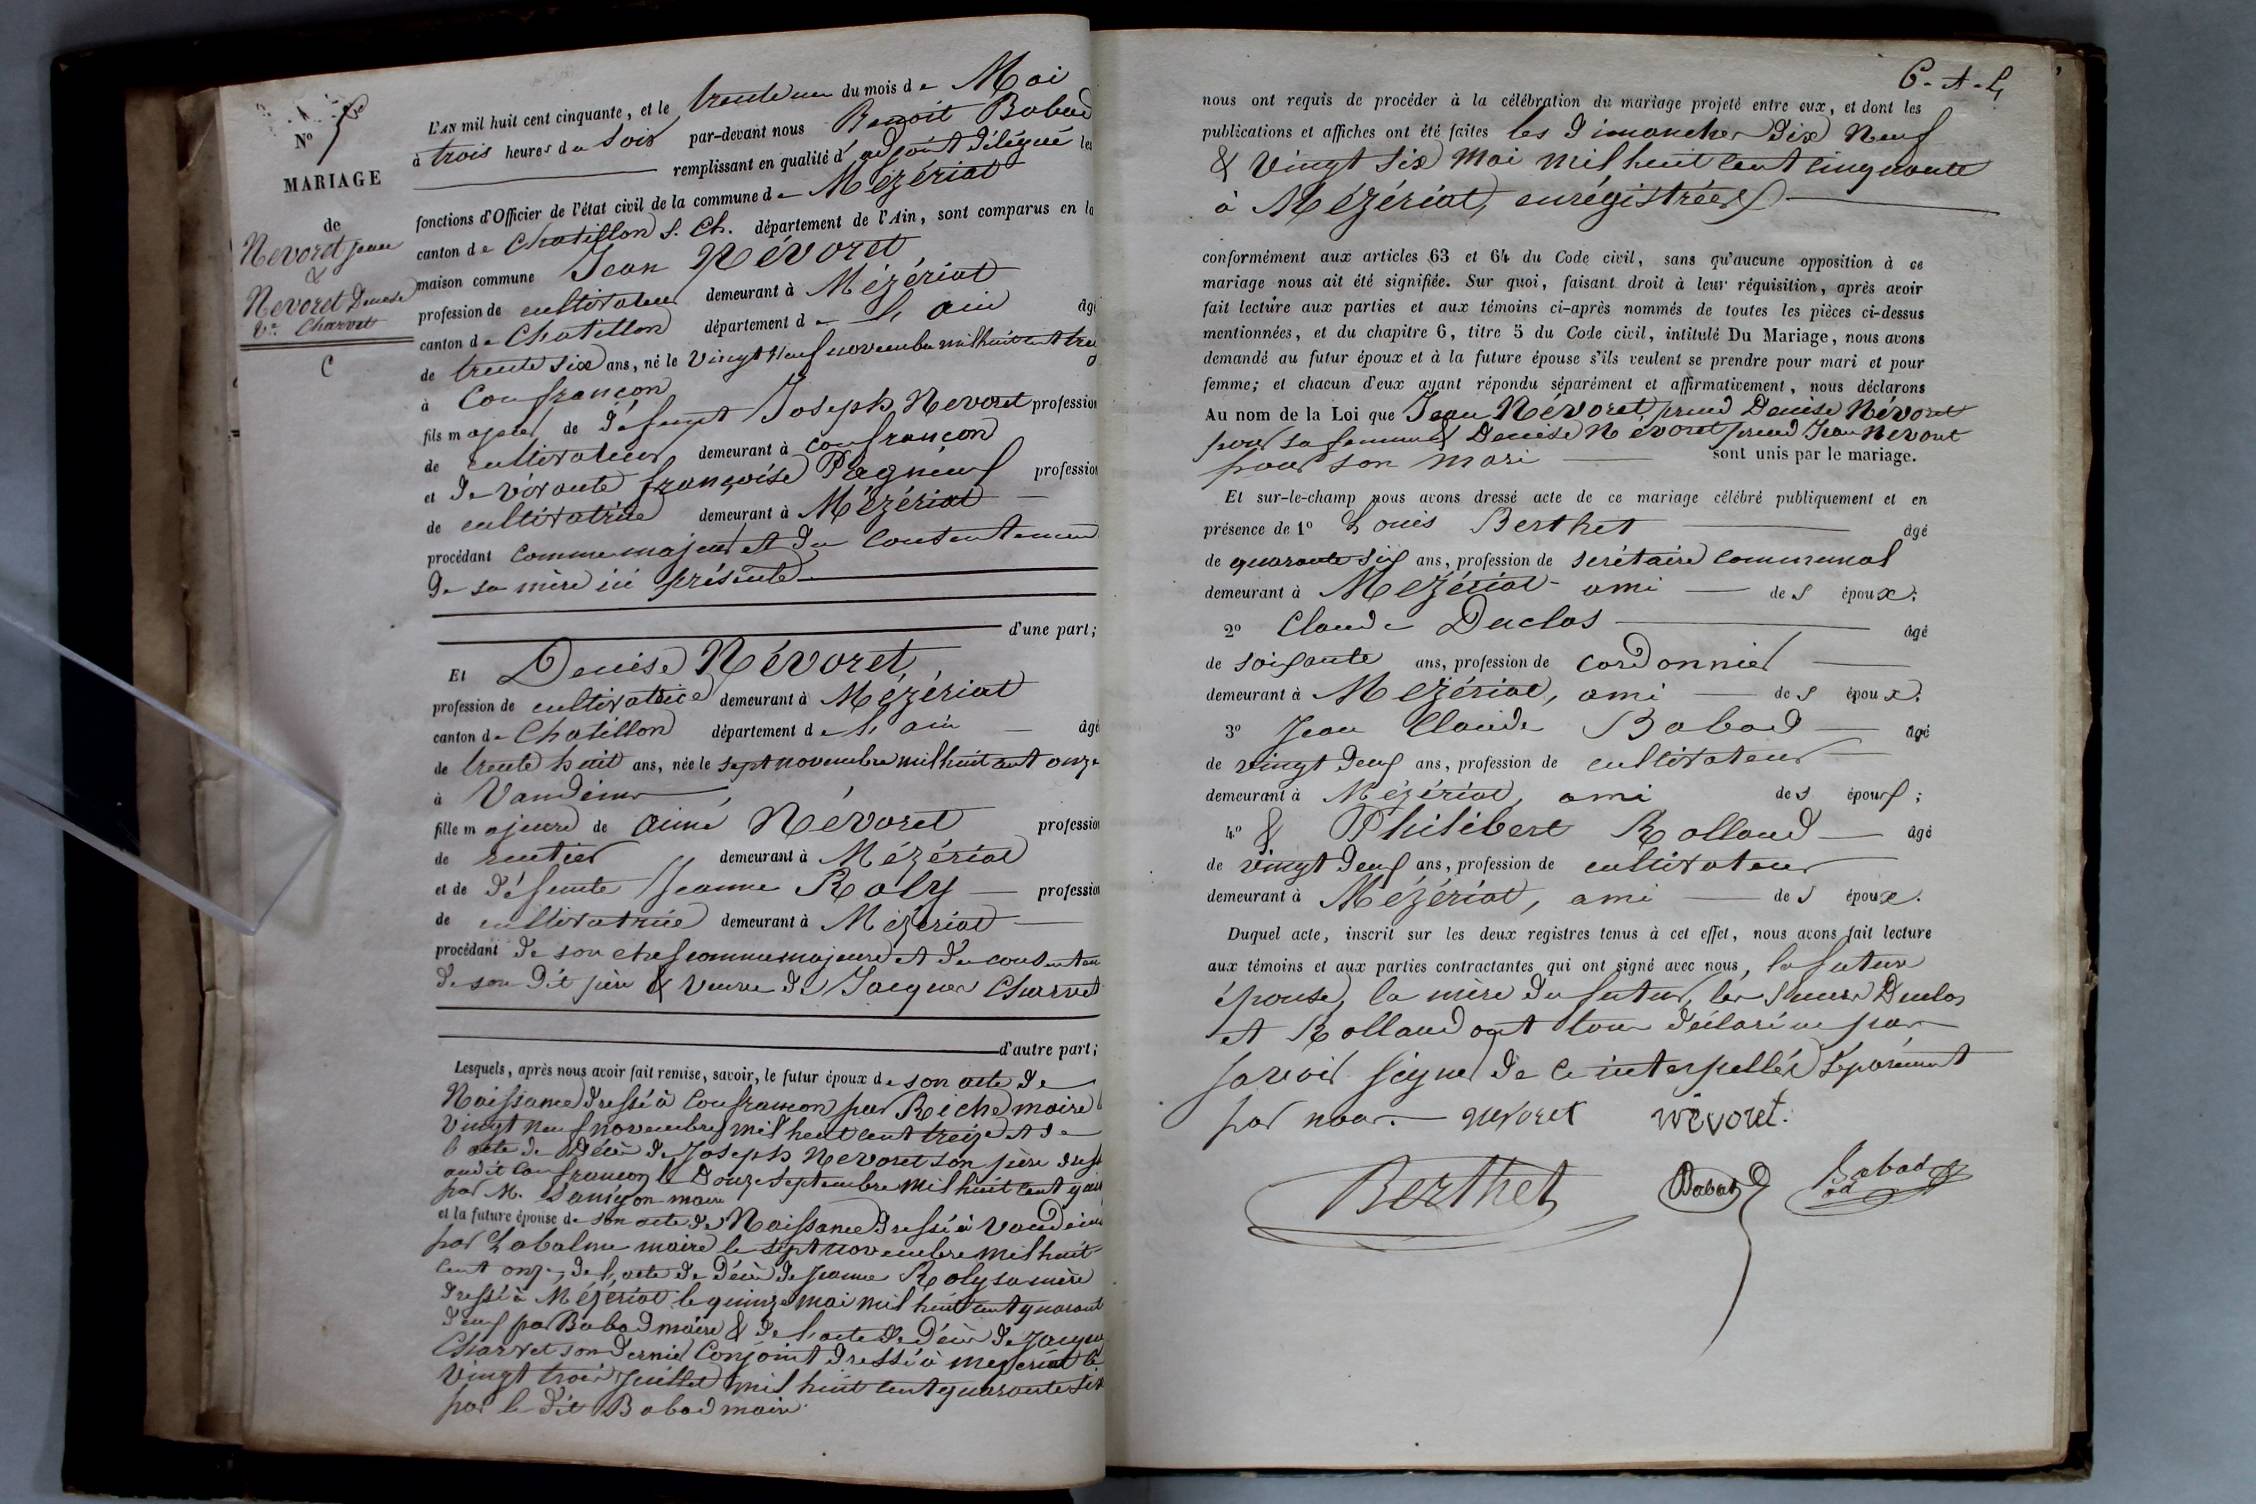 Nº 7
MARIAGE
de
Nevoret Jean
&
Nevoret Denise
Vve Charvet
C
L'AN mil huit cent cinquante, et le trente un du mois de Mai
à trois heures du soir par-devant nous Benoit Babad
remplissant en qualité d'adjoint délégué les
fonctions d'Officier de l'état civil de la commune de Mézériat
canton de Chatillon s. Ch. département de l'Ain, sont comparus en la
maison commune Jean Névoret
profession de cultivateur demeurant à Mézériat
canton de Chatillon département de l'ain âgé
de trente six ans, né le vingt neuf novembre mil huit cent trei
à Confrançon
fils majeur de défunt Joseph Nevoret profession
de cultivateur demeurant à confrancon
et de vivante françoise Pagneux profession
de cultivatrice demeurant à Mézériat
procédant comme majeur et du consentement
de sa mère ici présente
d'une part;
Et Denise Névoret
profession de cultivatrice demeurant à Mézériat
canton de Chatillon département de l'ain âgé
de trente huit ans, née le sept novembre mil huit cent onze
à Vandeins
fille majeure de aimé Névoret profession
de rentier demeurant à Mézériat
et de défunte Jeanne Roly profession
de cultivatrice demeurant à Mézériat
procédant de son chef comme majeure et du consentem
de son dit père & veuve de Jacques Charvet
d'autre part;
Lesquels, après nous avoir fait remise, savoir, le futur époux de son acte de
Naissance dressé à Confrançon par Riche maire l
vingt neuf novembre mil huit cent treize et de
l'acte de décès de Joseph Nevoret son père dress
audit Confrançon le Douze Septembre mil huit cent
par M. maire
et la future épouse de son acte de Naissance dressé à Vandeins
par Labalme maire le sept novembre mil huit
cent onze, de l'acte de décès de Jeanne Roly sa mère
dressé à Mézériat le quinze mai mil huit cent quarant
deux par Babad maire & de l'acte de décès de Jacques
Charvet son dernier conjoint dressé à mezeriat le
vingt trois juillet mil huit cent quarante six
par le dit Babad maire.
6. A. L,
nous ont requis de procéder à la célébration du mariage projeté entre eux, et dont les
publications et affiches ont été faites les dimanches dix Neuf
& vingt six Mai mil huit cent cinquante
à Mézériat, enrégistrées
conformément aux articles 63 et 64 du Code civil, sans qu'aucune opposition à ce
mariage nous ait été signifiée. Sur quoi, faisant droit à leur réquisition, après avoir
fait lecture aux parties et aux témoins ci-après nommés de toutes les pièces ci-dessus
mentionnées, et du chapitre 6, titre 5 du Code civil, intitulé Du Mariage, nous avons
demandé au futur époux et à la future épouse s'ils veulent se prendre pour mari et pour
femme; et chacun d'eux ayant répondu séparément et affirmativement, nous déclarons
Au nom de la Loi que Jean Névoret prend Denise Névoret
pour sa femme & Denise Nevoret prend Jean Nevoret
pour son mari sont unis par le mariage.
Et sur-le-champ nous avons dressé acte de ce mariage célébré publiquement et en
présence de 1º Louis Berthet âgé
de quarante six ans, profession de serétaire communal
demeurant à Mézériat ami des époux;
2º Claude Duclos âgé
de soixante ans, profession de cordonnier
demeurant à Mezériat, ami des époux;
3º Jean Claude Babad âgé
de vingt deux ans, profession de cultivateur
demeurant à Mézériat, ami des époux;
4º & Philibert Rolland âgé
de vingt deux ans, profession de cultivateur
demeurant à Mézériat, ami des époux.
Duquel acte, inscrit sur les deux registres tenus à cet effet, nous avons fait lecture
aux témoins et aux parties contractantes qui ont signé avec nous, la future
épouse, la mère du futur, les sieurs Duclos
et Rolland ont tous déclaré ne pas
savoir signer de ce interpellés séparément
par nous. nevoret Nevoret.
Berthet Babad Babad